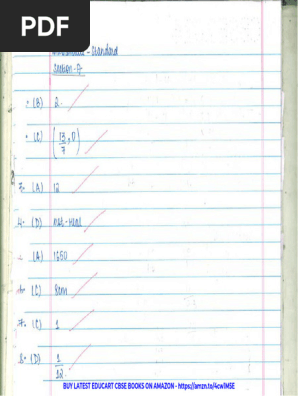 PDF
Mathematics - Standard
Section-A
(B) 2.
(C) (13/7, 0)
3. (A) 12
4. (D) not-real
(A) 1650
6. (C) 8cm
7. (C) 1
8. (D) 1/12.
BUY LATEST EDUCART CBSE BOOKS ON AMAZON - https://amzn.to/4cwlMSE